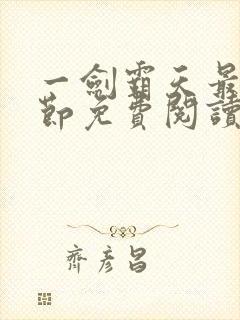 一劍霸天最
節免費閱讀
齊彥昌